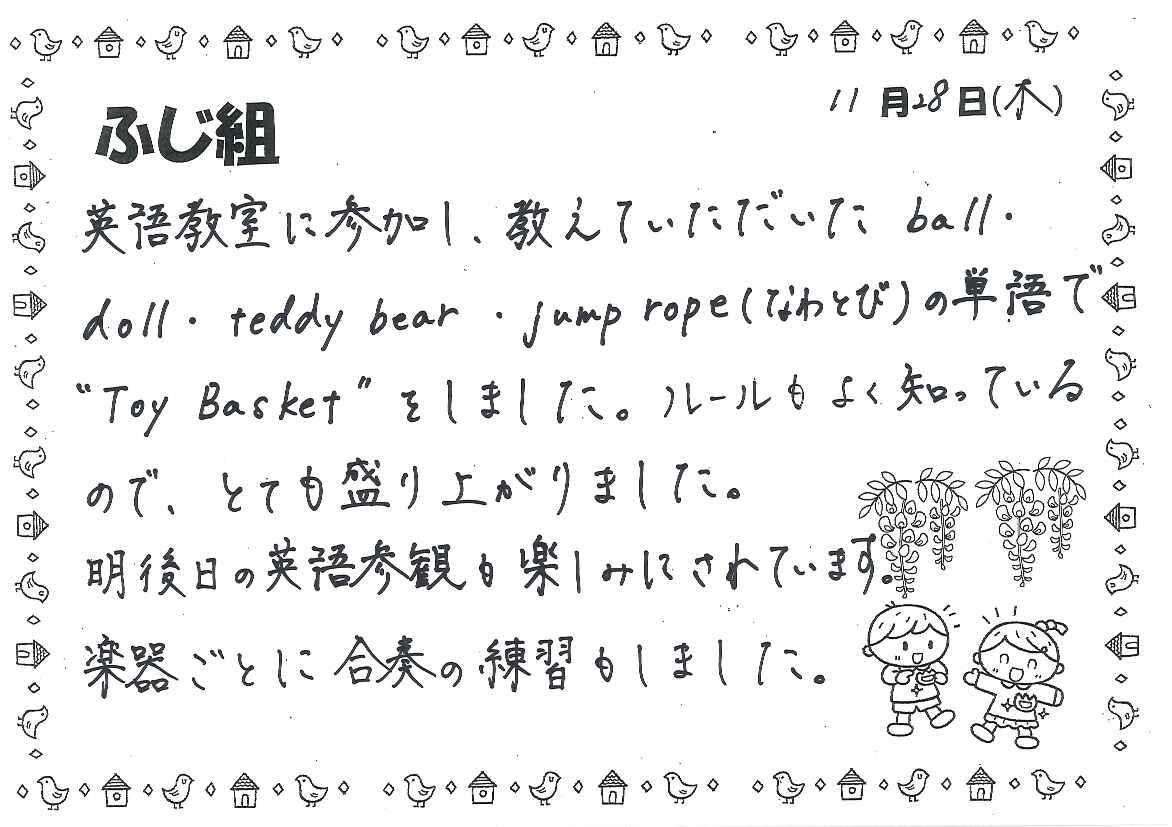 11月28日(木)
ふじ組
英語教室に参加し、教えていただいた ball・
doll・teddy bear・jump rope(なわとび)の単語で
“Toy Basket”をしました。ルールもよく知っている
ので、とても盛り上がりました。
明後日の英語参観も楽しみにされています。
楽器ごとに合奏の練習もしました。